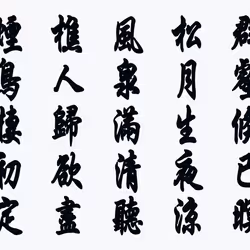 群壑倏已暝
松月生夜涼
風泉滿清聽
樵人歸欲盡
煙鳥棲初定